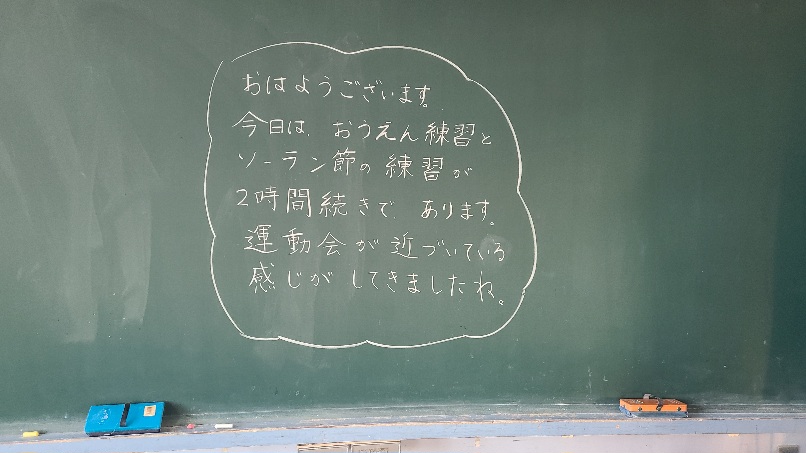 おはようございます。
今日は、おうえん練習と
ソーラン節の練習が
2時間続きで、あります。
運動会が近づいている
感じがしてきましたね。